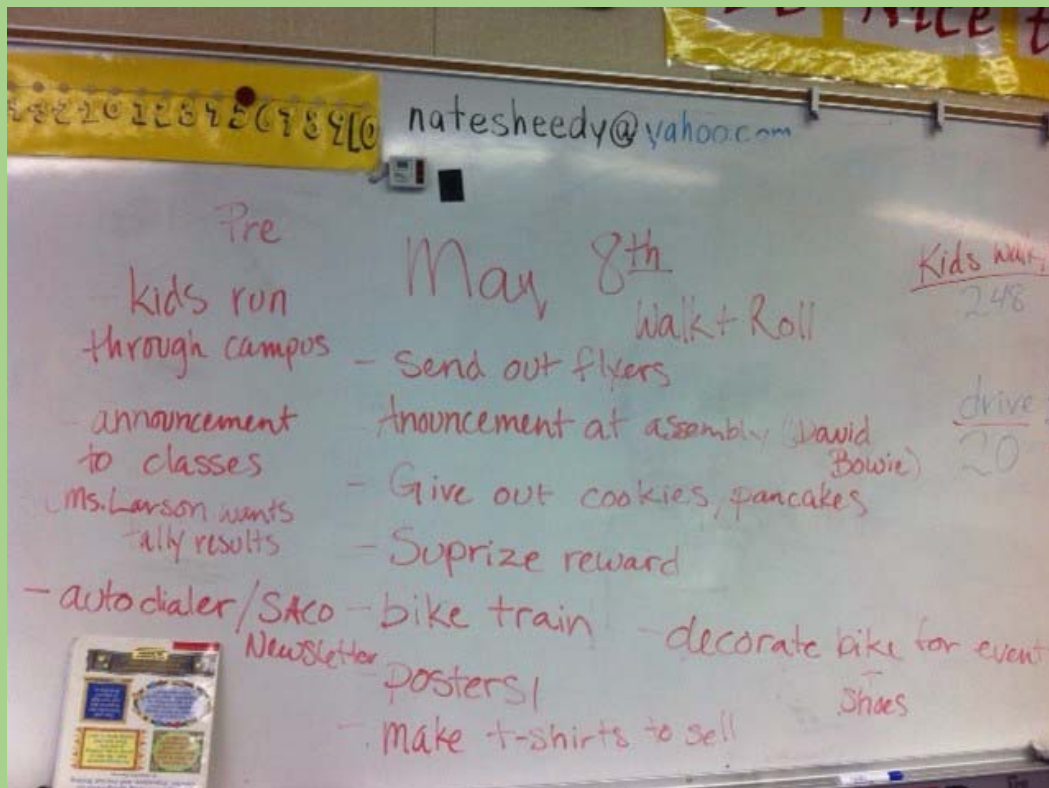 Nice
natesheedy@yahoo.com
Pre
kids run
through campus
announcement
to classes
Ms. Larson wants
tally results
- autodialer/SACO
Newsletter
May 8th
Walk + Roll
- Send out flyers
Anouncement at assembly (David
Bowie)
- Give out cookies, pancakes
- Suprize reward
- bike train
posters/
- make t-shirts to sell
- decorate bike for event
shoes
Kids walk
248
drive
20